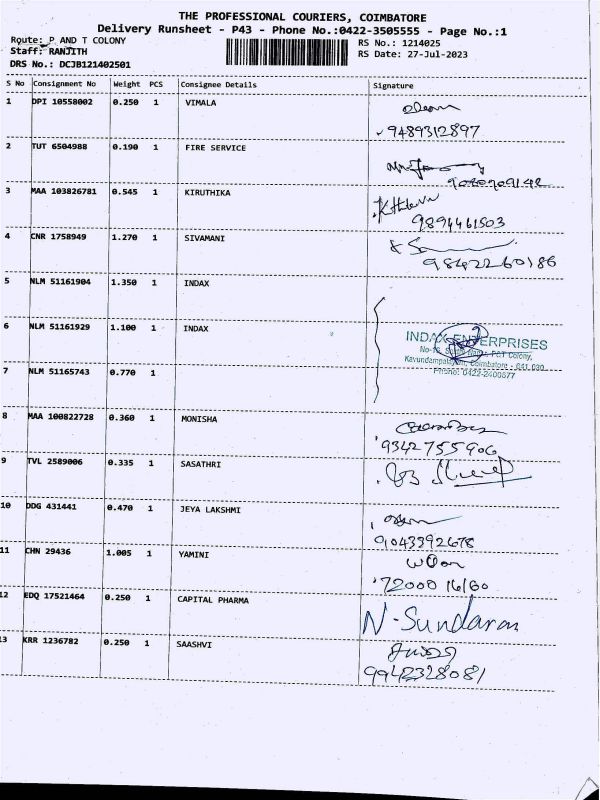 THE PROFESSIONAL COURIERS, COIMBATORE
Delivery Runsheet - P43 - Phone No.:0422-3505555 - Page No.:1
Route: P AND T COLONY RS No.: 1214025
Staff: RANJITH RS Date: 27-Jul-2023
DRS No.: DCJB121402501
S No Consignment No Weight PCS Consignee Details Signature
1 DPI 10558002 0.250 1 VIMALA
9489312897
2 TUT 6504988 0.190 1 FIRE SERVICE
3 MAA 103826781 0.545 1 KIRUTHIKA
9894461503
4 CNR 1758949 1.270 1 SIVAMANI
9842260186
5 NLM 51161904 1.350 1 INDAX
6 NLM 51161929 1.100 1 INDAX
INDAX ENTERPRISES
P&T Colony,
Coimbatore - 641 030
7 NLM 51165743 0.770 1
Phone: 0422-2400577
8 MAA 100822728 0.360 1 MONISHA
9342755906
9 TVL 2589006 0.335 1 SASATHRI
10 DDG 431441 0.470 1 JEYA LAKSHMI
9043392678
11 CHN 29436 1.005 1 YAMINI
72000 16160
12 EDQ 17521464 0.250 1 CAPITAL PHARMA
N-Sundaram
13 KRR 1236782 0.250 1 SAASHVI
9942328081